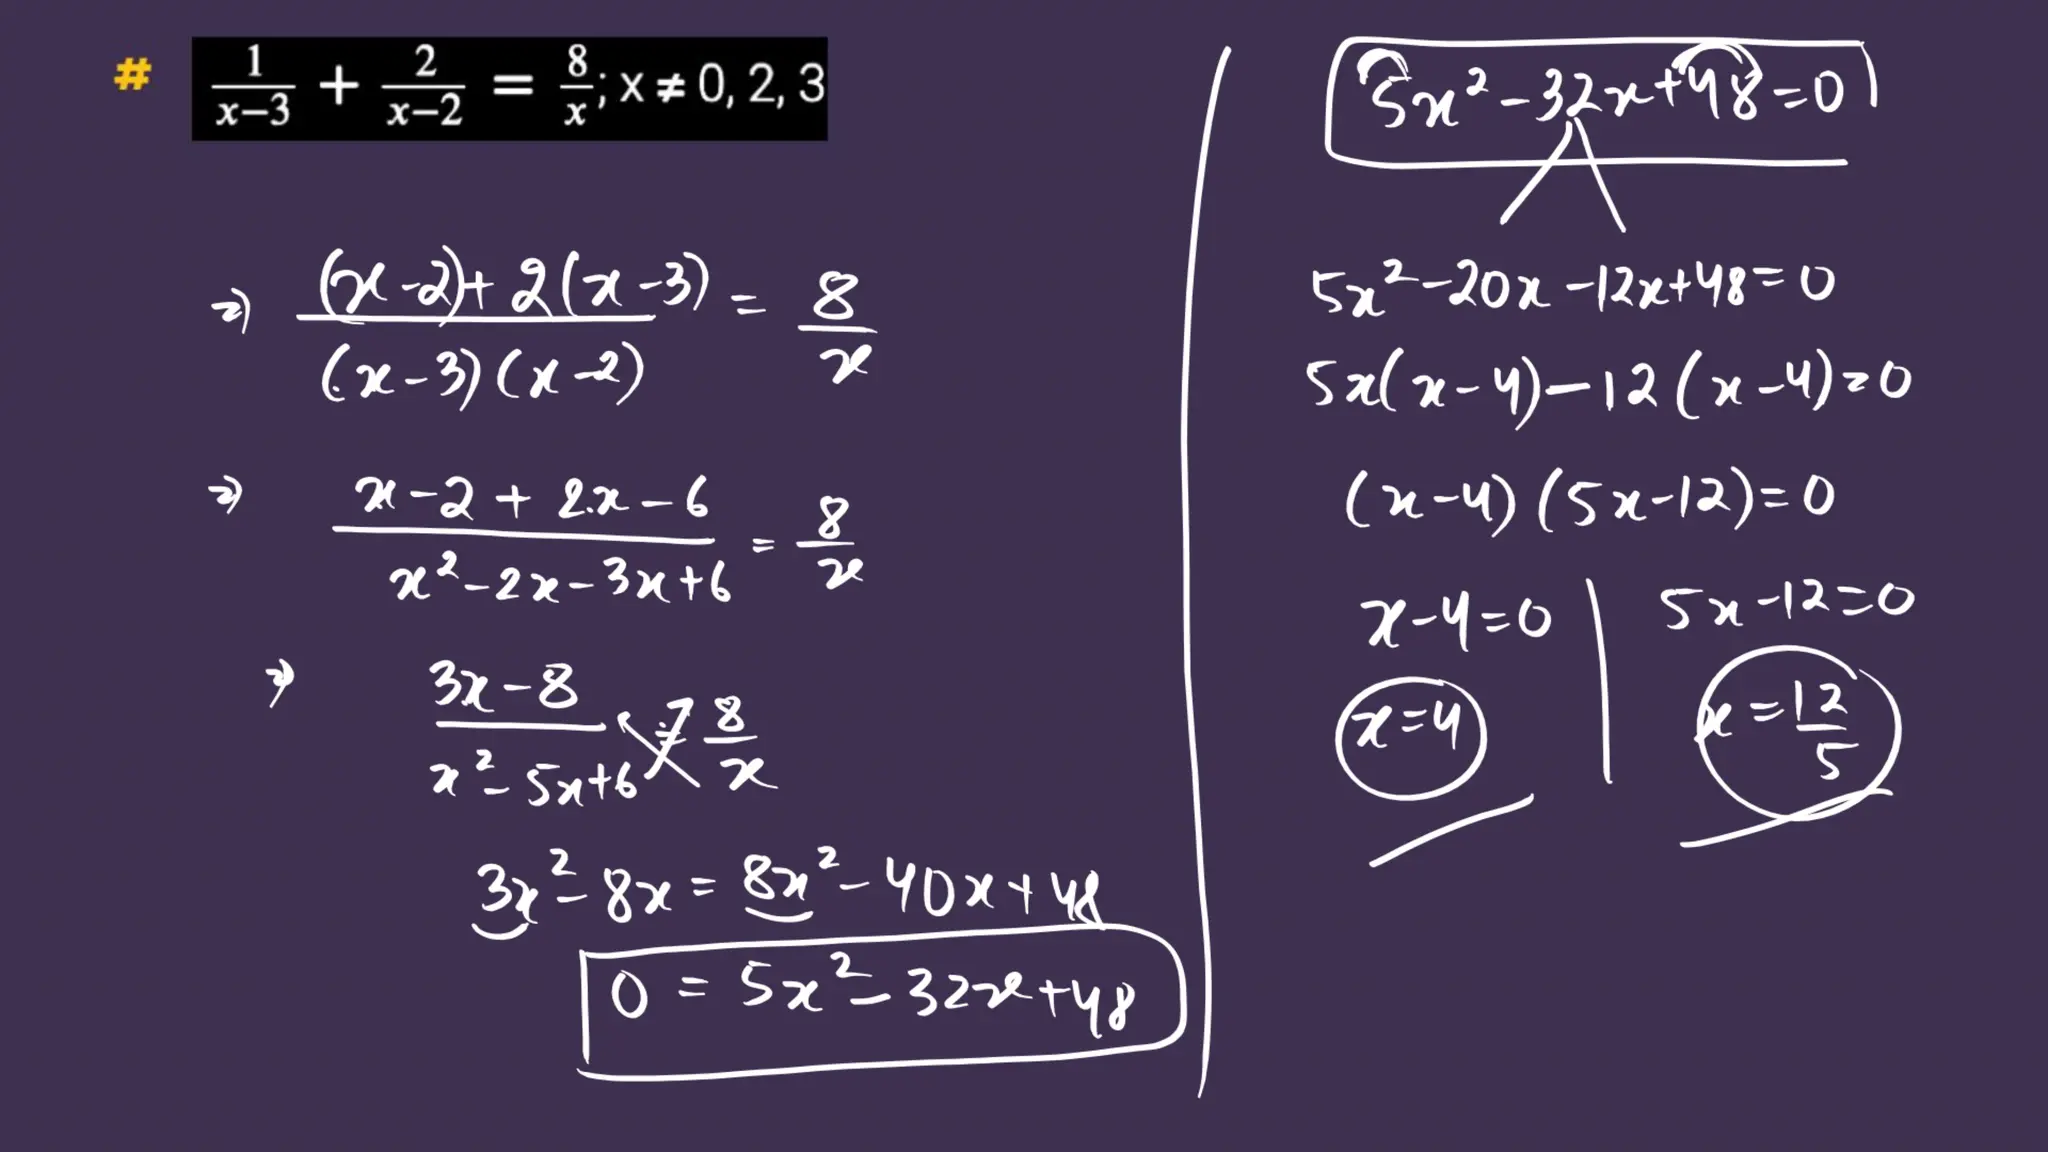 # 1/(x−3) + 2/(x−2) = 8/x; x ≠ 0, 2, 3
⇒ ((x-2)+2(x-3))/((x-3)(x-2)) = 8/x
⇒ (x-2+2x-6)/(x²-2x-3x+6) = 8/x
⇒ (3x-8)/(x²-5x+6) = 8/x
3x²-8x = 8x²-40x+48
0 = 5x²-32x+48
5x²-32x+48=0
5x²-20x-12x+48=0
5x(x-4)-12(x-4)=0
(x-4)(5x-12)=0
x-4=0 | 5x-12=0
x=4 | x=12/5